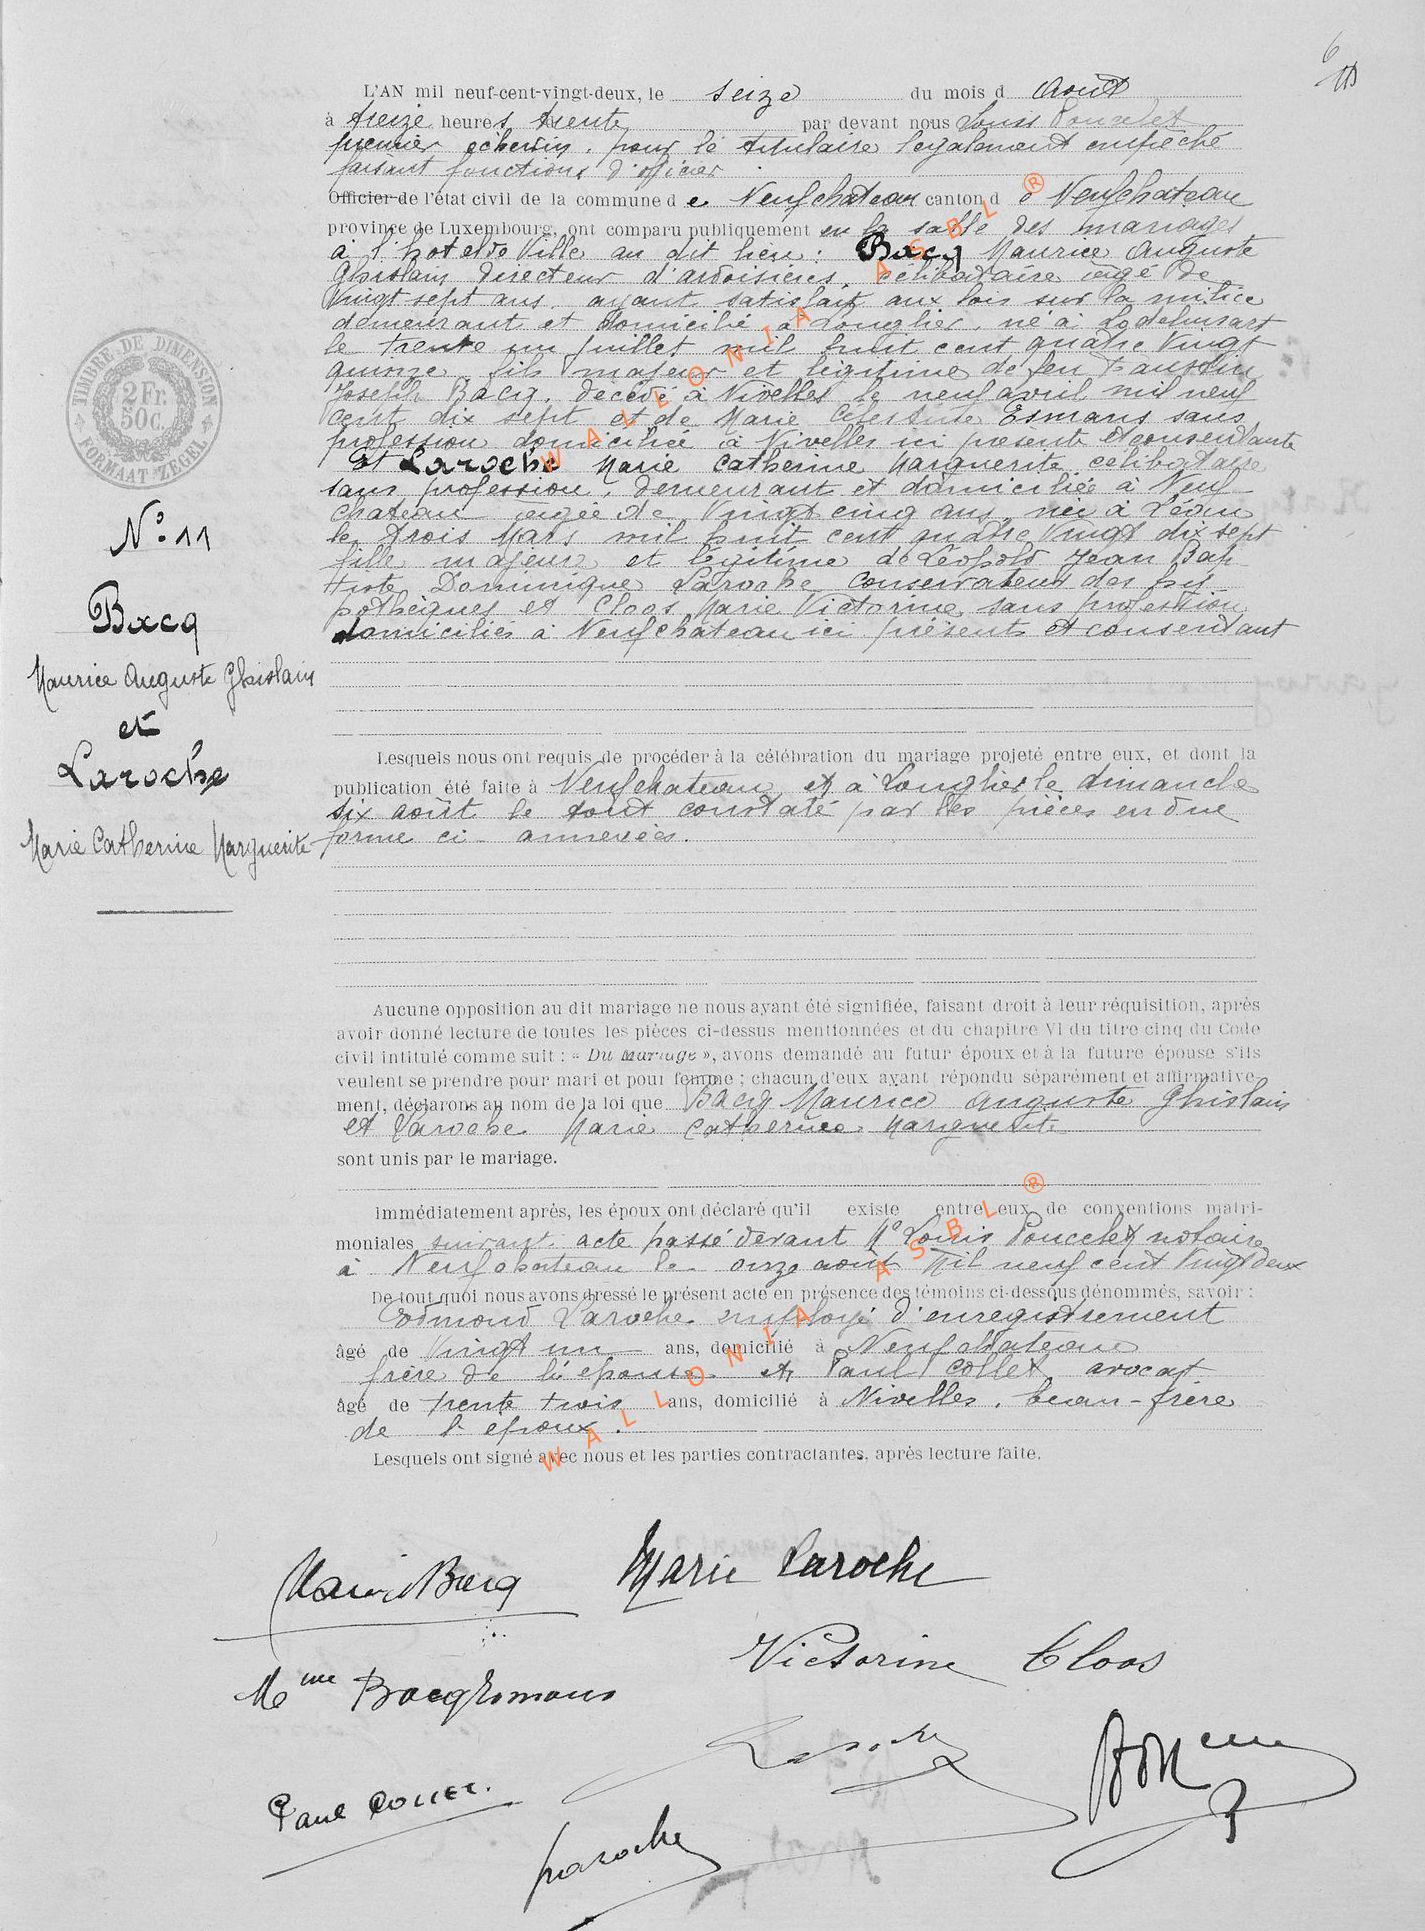 6
L'AN mil neuf-cent-vingt-deux, le seize du mois d Août
à treize heures trente par devant nous Louis Poncelet
premier échevin, pour le titulaire légalement empêché
faisant fonctions d'officier
Officier de l'état civil de la commune de Neufchateau canton de Neufchateau
province de Luxembourg, ont comparu publiquement en la salle des mariages
à l'hotel de Ville au dit lieu : Bacq Maurice Auguste
Ghislain, directeur d'ardoisières, célibataire âgé de
vingt sept ans, ayant satisfait aux lois sur la milice
demeurant et domicilié à Longlier, né à Lodelinsart
le trente un juillet mil huit cent quatre vingt
quinze, fils majeur et légitime de feu Faustin
Joseph Bacq, décédé à Nivelles le neuf avril mil neuf
cent dix sept et de Marie Célestine Esmans sans
profession domiciliée à Nivelles ici présente et consentante
et Laroche Marie Catherine Marguerite célibataire
sans profession, demeurant et domiciliée à Neuf
chateau âgée de vingt cinq ans, née à
le trois Mars mil huit cent quatre vingt dix sept
fille majeure et légitime de Léopold Jean Bap
tiste Dominique Laroche Conservateur des hy
pothèques et Cloos Marie Victorine sans profession
domiciliés à Neufchateau ici présents et consentant
TIMBRE DE DIMENSION
2 Fr.
50c.
FORMAAT ZEGEL
N° 11
Bacq
Maurice Auguste Ghislain
et
Laroche
Marie Catherine Marguerite
Lesquels nous ont requis de procéder à la célébration du mariage projeté entre eux, et dont la
publication été faite à Neufchateau et à Longlier le dimanche
six août le tout constaté par les pièces en due
forme ci-annexées.
Aucune opposition au dit mariage ne nous ayant été signifiée, faisant droit à leur réquisition, après
avoir donné lecture de toutes les pièces ci-dessus mentionnées et du chapitre VI du titre cinq du Code
civil intitulé comme suit : « Du Mariage », avons demandé au futur époux et à la future épouse s'ils
veulent se prendre pour mari et pour femme ; chacun d'eux ayant répondu séparément et affirmative-
ment, déclarons au nom de la loi que Bacq Maurice Auguste Ghislain
et Laroche Marie Catherine Marguerite
sont unis par le mariage.
Immédiatement après, les époux ont déclaré qu'il existe entre eux de conventions matri-
moniales suivant acte passé devant Me Louis Poncelet notaire
à Neufchateau le onze août Mil neuf cent Vingt deux
De tout quoi nous avons dressé le présent acte en présence des témoins ci-dessous dénommés, savoir :
Edmond Laroche employé d'enregistrement
âgé de Vingt un ans, domicilié à Neufchateau
frère de l'épouse et Paul Collet avocat
âgé de trente trois ans, domicilié à Nivelles, beau-frère
de l'époux.
Lesquels ont signé avec nous et les parties contractantes, après lecture faite.
WALLONIA ASBL ®
WALLONIA ASBL ®
Marie Laroche
Victorine Cloos
Mme Bacq Esmans
Paul Collet.
Laroche